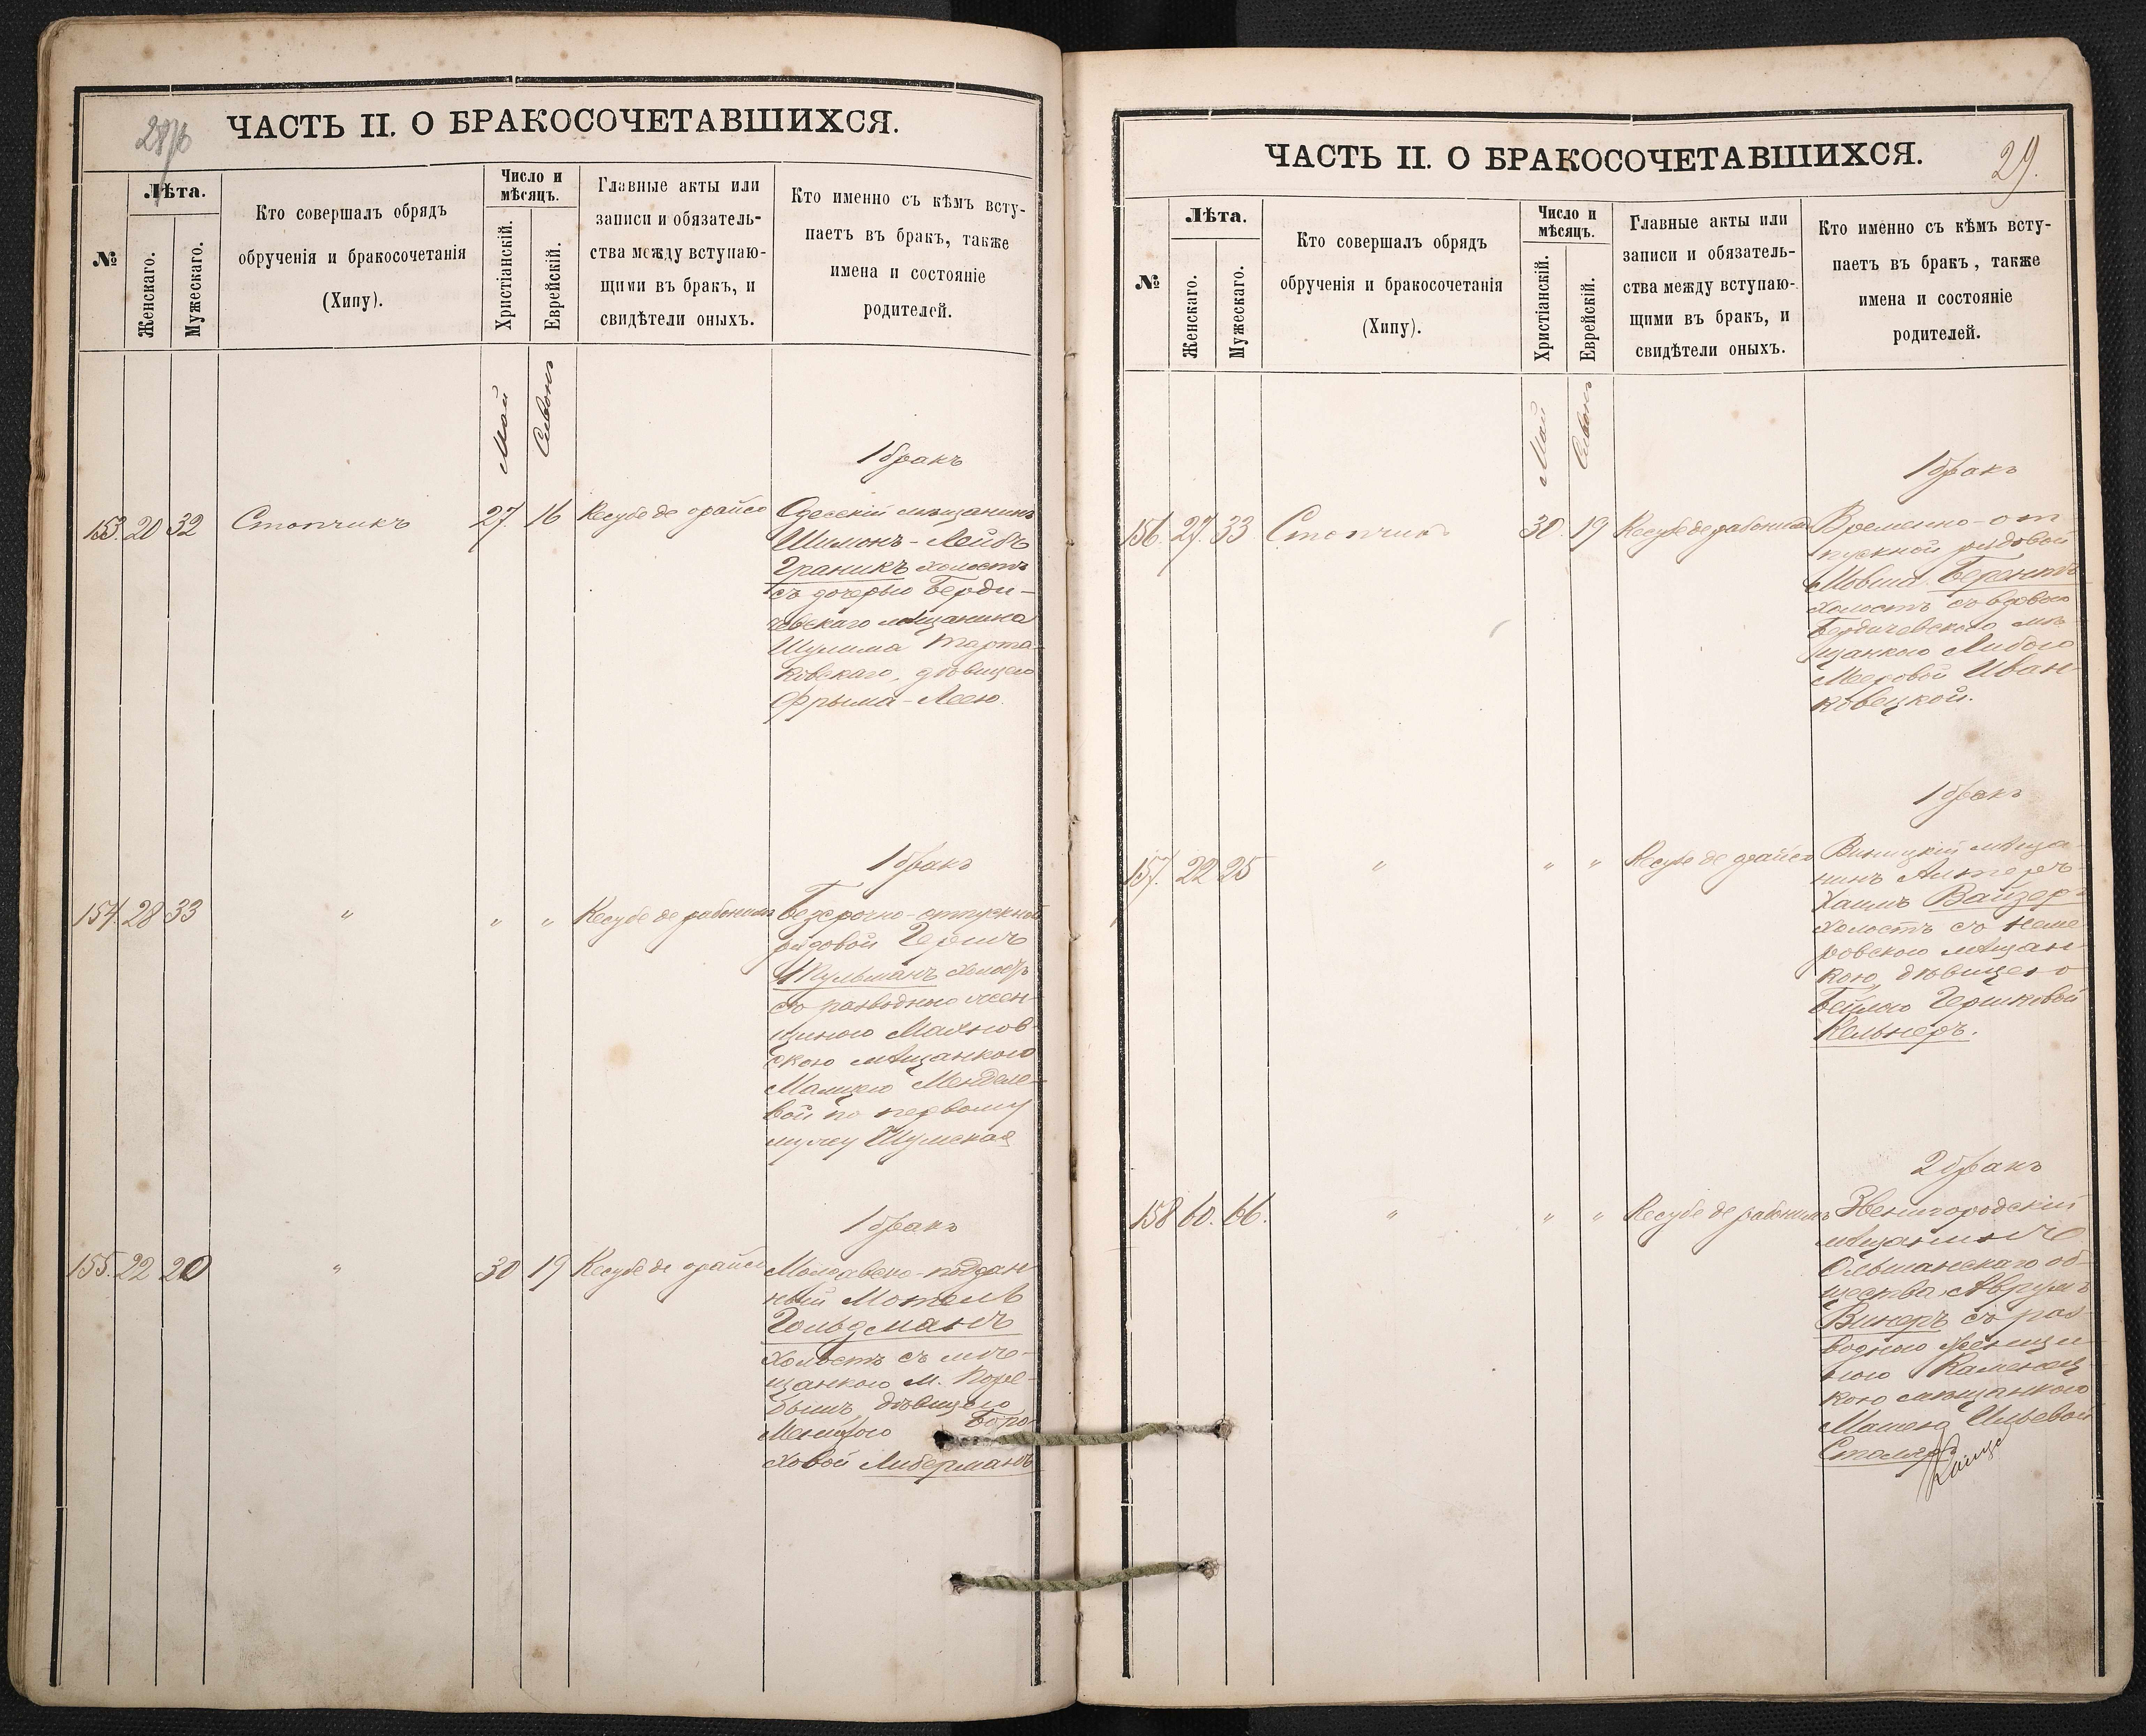 28об
ЧАСТЬ II. О БРАКОСОЧЕТАВШИХСЯ.
№
Лѣта.
Женскаго.
Мужескаго.
Кто совершалъ обрядъ
обрученія и бракосочетанія
(Хипу).
Число и
мѣсяцъ.
Христіанскій.
Еврейскій.
Главные акты или
записи и обязатель-
ства между вступаю-
щими въ бракъ, и
свидѣтели оныхъ.
Кто именно съ кѣмъ всту-
паетъ въ бракъ, также
имена и состояніе
родителей.
Май
Сивонъ
1 бракъ
153. 20 32 Стопчикъ 27. 16 Кесубе де орайсо Одесскій мѣщанинъ
Шимонъ-Лейбъ
Граникъ холостъ
съ дочерью Берди-
чевскаго мѣщанина
Шулима Тарта-
ковскаго, дѣвицею
Фрыма-Леею.
1 бракъ
154. 28 33 " " " Кесубе де рабонимъ Безсрочно-отпускной
рядовой Гершъ
Шульманъ холостъ
съ разводною жен-
щиною Махнов-
скою мѣщанкою
Малкою Менделе-
вой по первому
мужу Шумская
1 бракъ
155. 22 20 " 30 19 Кесубе де орайсо Молдавско-поддан-
ный Мотель
Гольдманъ
холостъ съ мѣ-
щанкою м.
дѣвицею
Боро-
ховой Либерманъ
29.
ЧАСТЬ II. О БРАКОСОЧЕТАВШИХСЯ.
№
Лѣта.
Женскаго.
Мужескаго.
Кто совершалъ обрядъ
обрученія и бракосочетанія
(Хипу).
Число и
мѣсяцъ.
Христіанскій.
Еврейскій.
Главные акты или
записи и обязатель-
ства между вступаю-
щими въ бракъ, и
свидѣтели оныхъ.
Кто именно съ кѣмъ всту-
паетъ въ бракъ, также
имена и состояніе
родителей.
Май
Сивонъ
1 бракъ
156. 27. 33 Стопчикъ 30. 19 Кесубе де рабонимъ Временно-от-
пускной рядовой
Мовша
холостъ съ вдовою
Бердичевскою мѣ-
щанкою Либою
Иван-
ковецкой.
1 бракъ
157. 22 25 " " " Кесубе де орайсо Виницкій мѣща-
нинъ Алтеръ-
Хаимъ Вайзеръ
холостъ съ Неми-
ровскою мѣщан-
кою, дѣвицею
Бейлою Гершковой
Кельнеръ.
2 бракъ
158 60. 66. " " " Кесубе де рабонимъ Звенигородскій
мѣщанинъ
Ольшанскаго об-
щества, Аврумъ
Винеръ съ раз-
водною женщи-
ною Каменец-
кою мѣщанкою